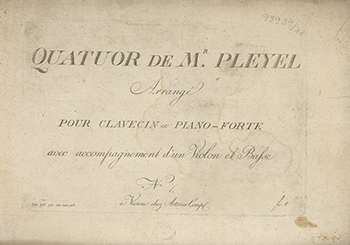 QUATUOR DE M.R PLEYEL
Arrangé
POUR CLAVECIN ou PIANO-FORTE
avec accompagnement d'un Violon et Basse
No
a Vienne chez Artaria Comp.